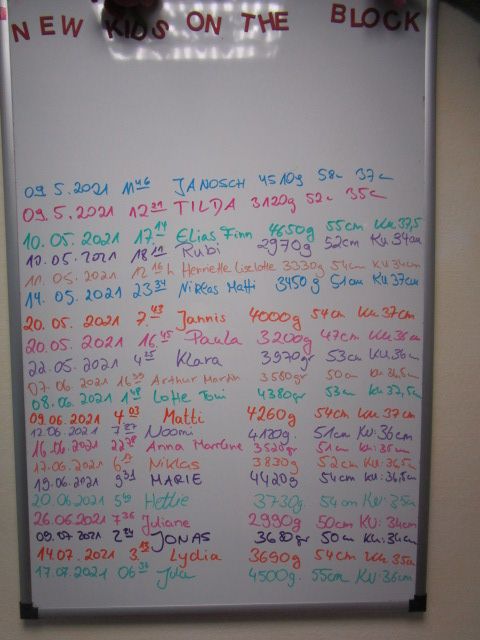 NEW KIDS ON THE BLOCK
09.5.2021 11 46 JANOSCH 4510g 58c 37c
09.5.2021 12 31 TILDA 3120g 52c 35c
10.05.2021 17 14 Elias Finn 4650g 55cm Ku 37,5
10.05.2021 18 Rubi 2970g 52cm Ku 34cm
11.05.2021 12 16 h Henriette Liselotte 3330g 54cm Ku 34cm
14.05.2021 23 34 Niklas Matti 3450g 51cm Ku 37cm
20.05.2021 7 43 Jannis 4000g 54cm Ku 37cm
20.05.2021 16 45 Paula 3200g 47cm Ku 36cm
22.05.2021 4 Klara 3970gr 53cm Ku 36cm
07.06.2021 16 Arthur Martin 3580gr 50cm Ku 36,5cm
08.06.2021 1 Lotte Toni 4380gr 53cm Ku 37,5cm
09.06.2021 4 03 Matti 4260g 54cm Ku 37cm
12.06.2021 7 Noomi 4120g. 51cm Ku: 36cm
16.06.2021 22 Anna Marlene 3520gr 51cm Ku: 35cm
17.06.2021 6 Niklas 3830g 52cm Ku: 36,5cm
19.06.2021 9 31 MARIE 4420g 54cm Ku: 36,5cm
20.06.2021 5 Hettie 3730g. 54cm Ku: 35cm
26.06.2021 7 36 Juliane 2990g 50cm KU: 34cm
09.07.2021 2 JONAS 3680gr 50cm Ku: 34cm
14.07.2021 3 Lydia 3690g 54cm Ku: 35cm
17.07.2021 06 Jula 4500g. 55cm Ku: 36cm